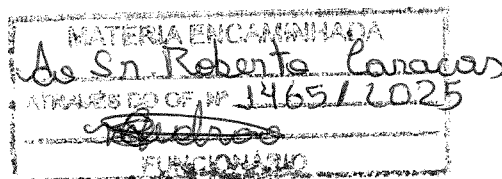 MATERIA ENCAMINHADA
Ao Sr Roberto Caracas
ATRAVÉS DO OF. Nº 1465/2025
FUNCIONÁRIO